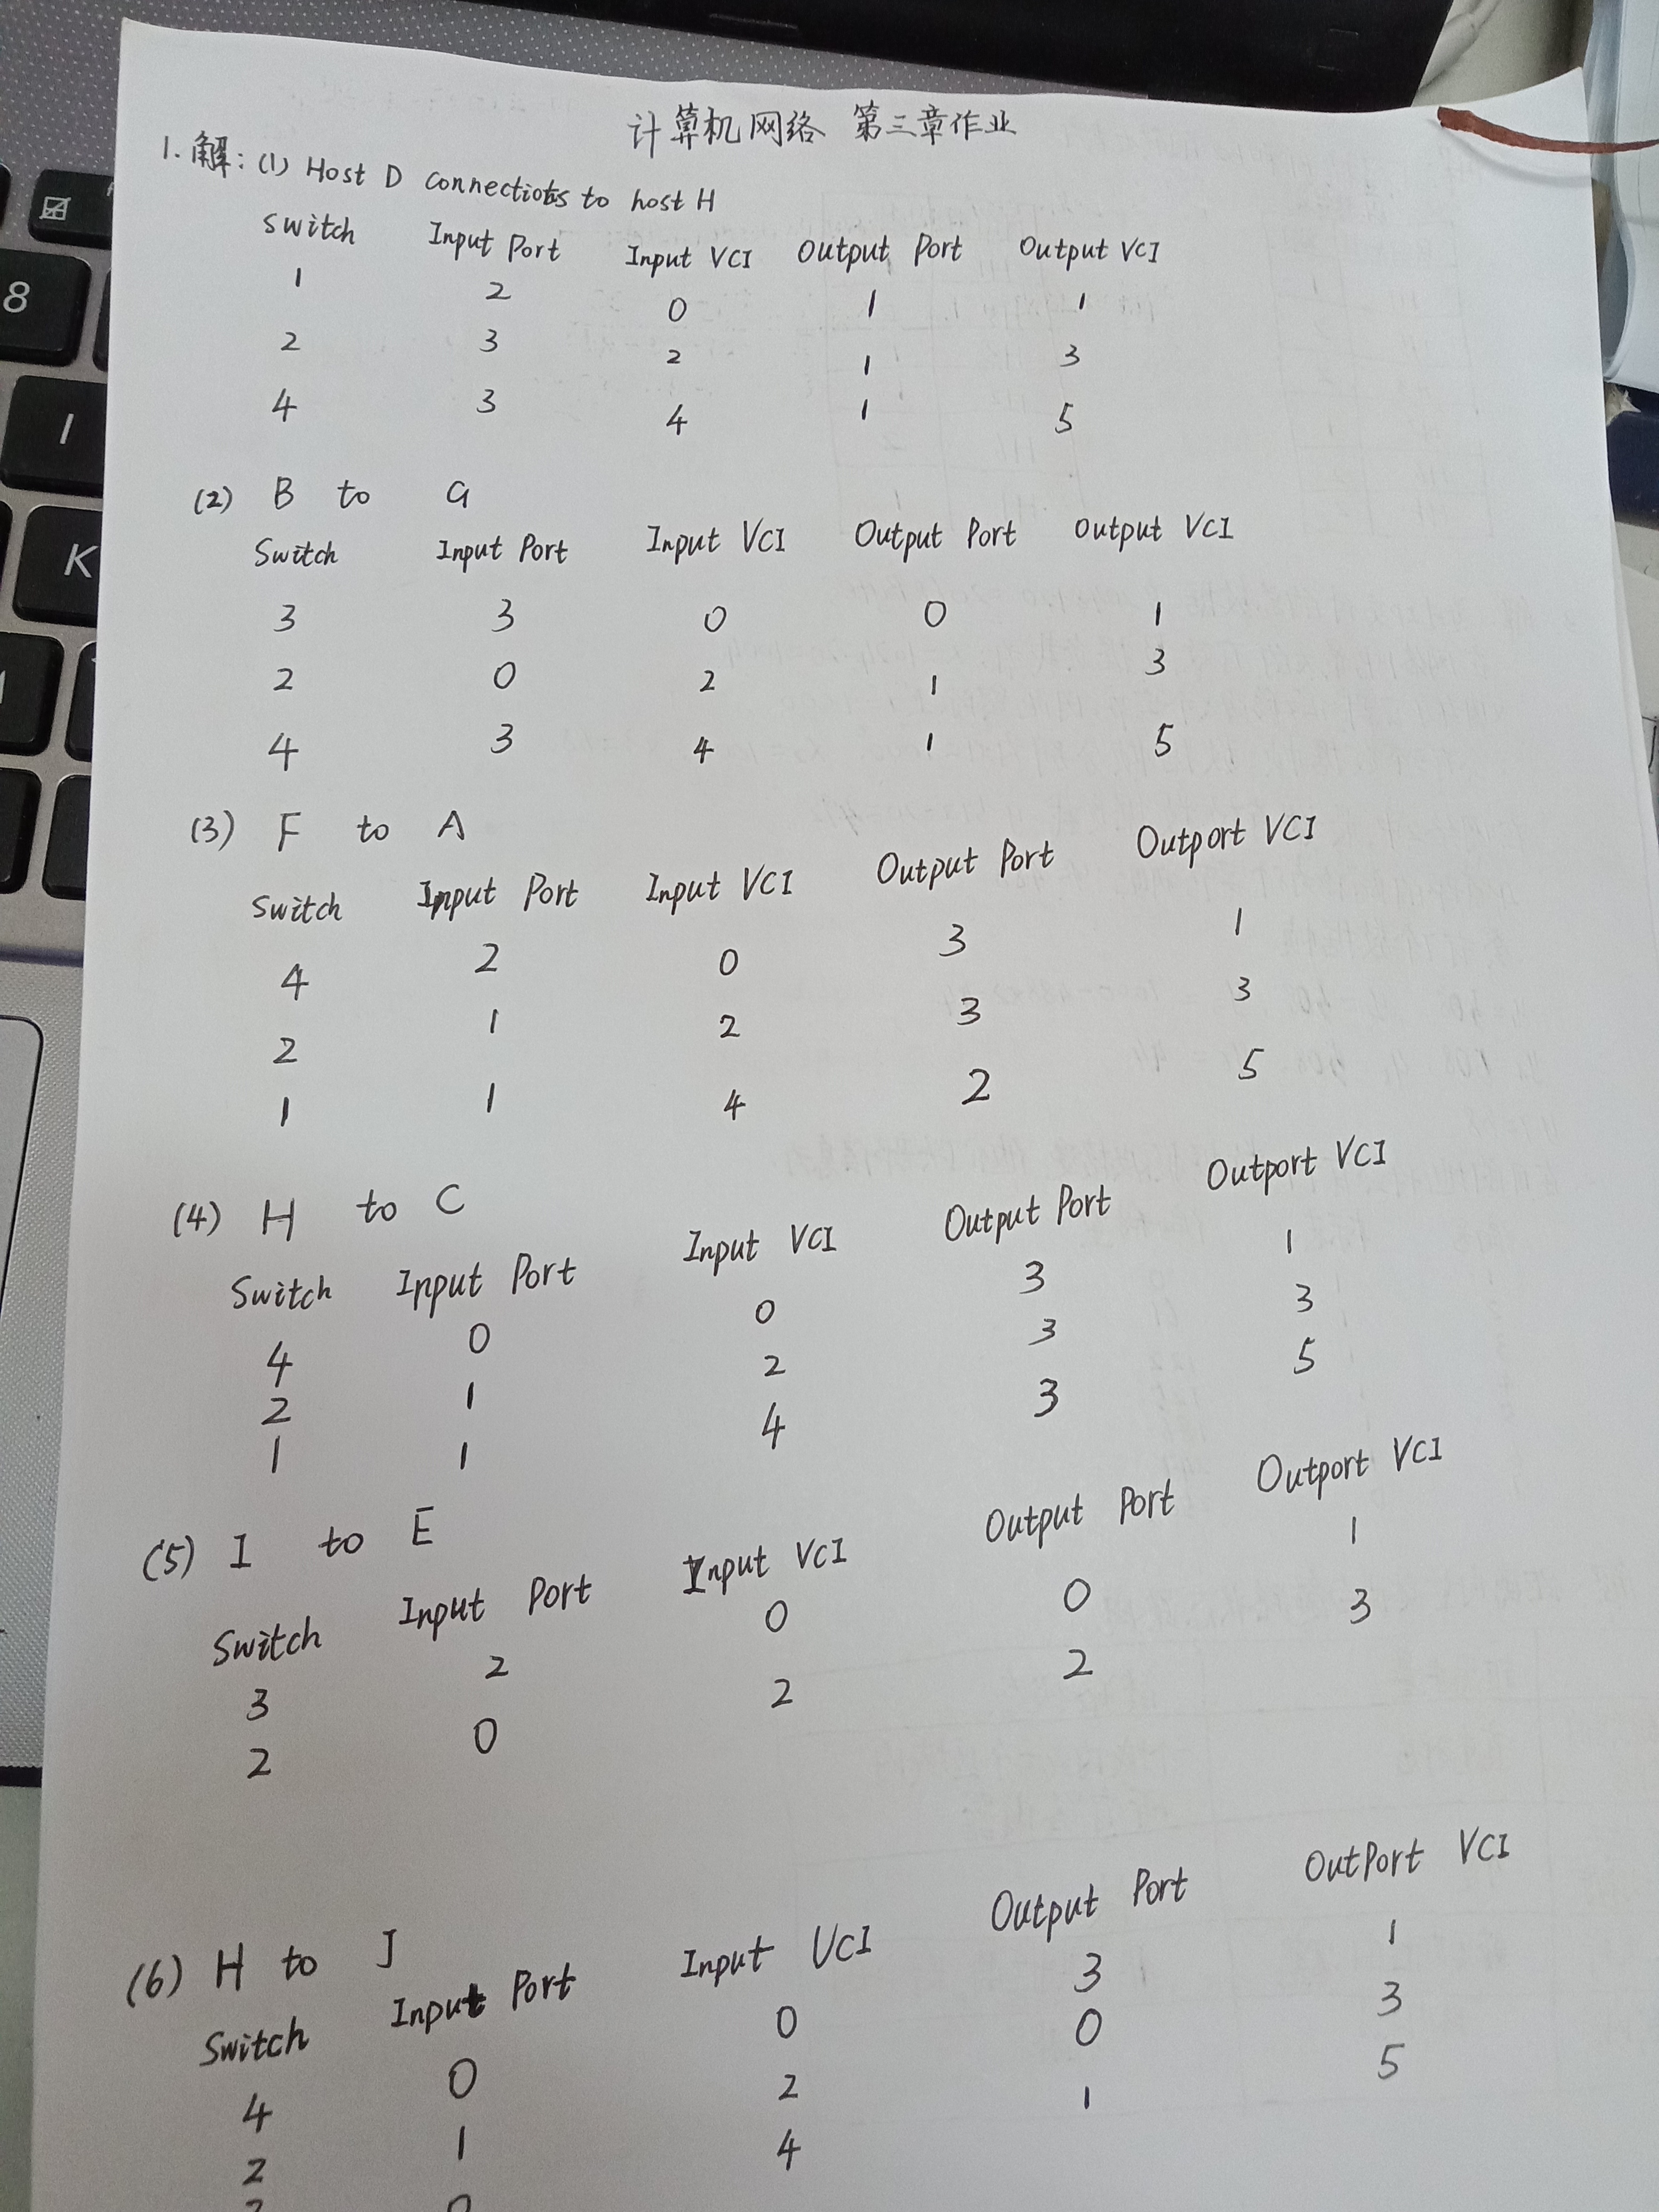 计算机网络 第三章作业
1.解: (1) Host D connections to host H
Switch Input Port Input VCI Output Port Output VCI
1 2 0 1 1
2 3 2 1 3
4 3 4 1 5
(2) B to G
Switch Input Port Input VCI Output Port Output VCI
3 3 0 0 1
2 0 2 1 3
4 3 4 1 5
(3) F to A
Switch Input Port Input VCI Output Port Outport VCI
4 2 0 3 1
2 1 2 3 3
1 1 4 2 5
(4) H to C
Switch Input Port Input VCI Output Port Outport VCI
4 0 0 3 1
2 1 2 3 3
1 1 4 3 5
(5) I to E
Switch Input Port Input VCI Output Port Outport VCI
3 2 0 0 1
2 0 2 2 3
(6) H to J
Switch Input Port Input VCI Output Port OutPort VCI
4 0 0 3 1
2 1 2 0 3
3 0 4 1 5
8
I
K